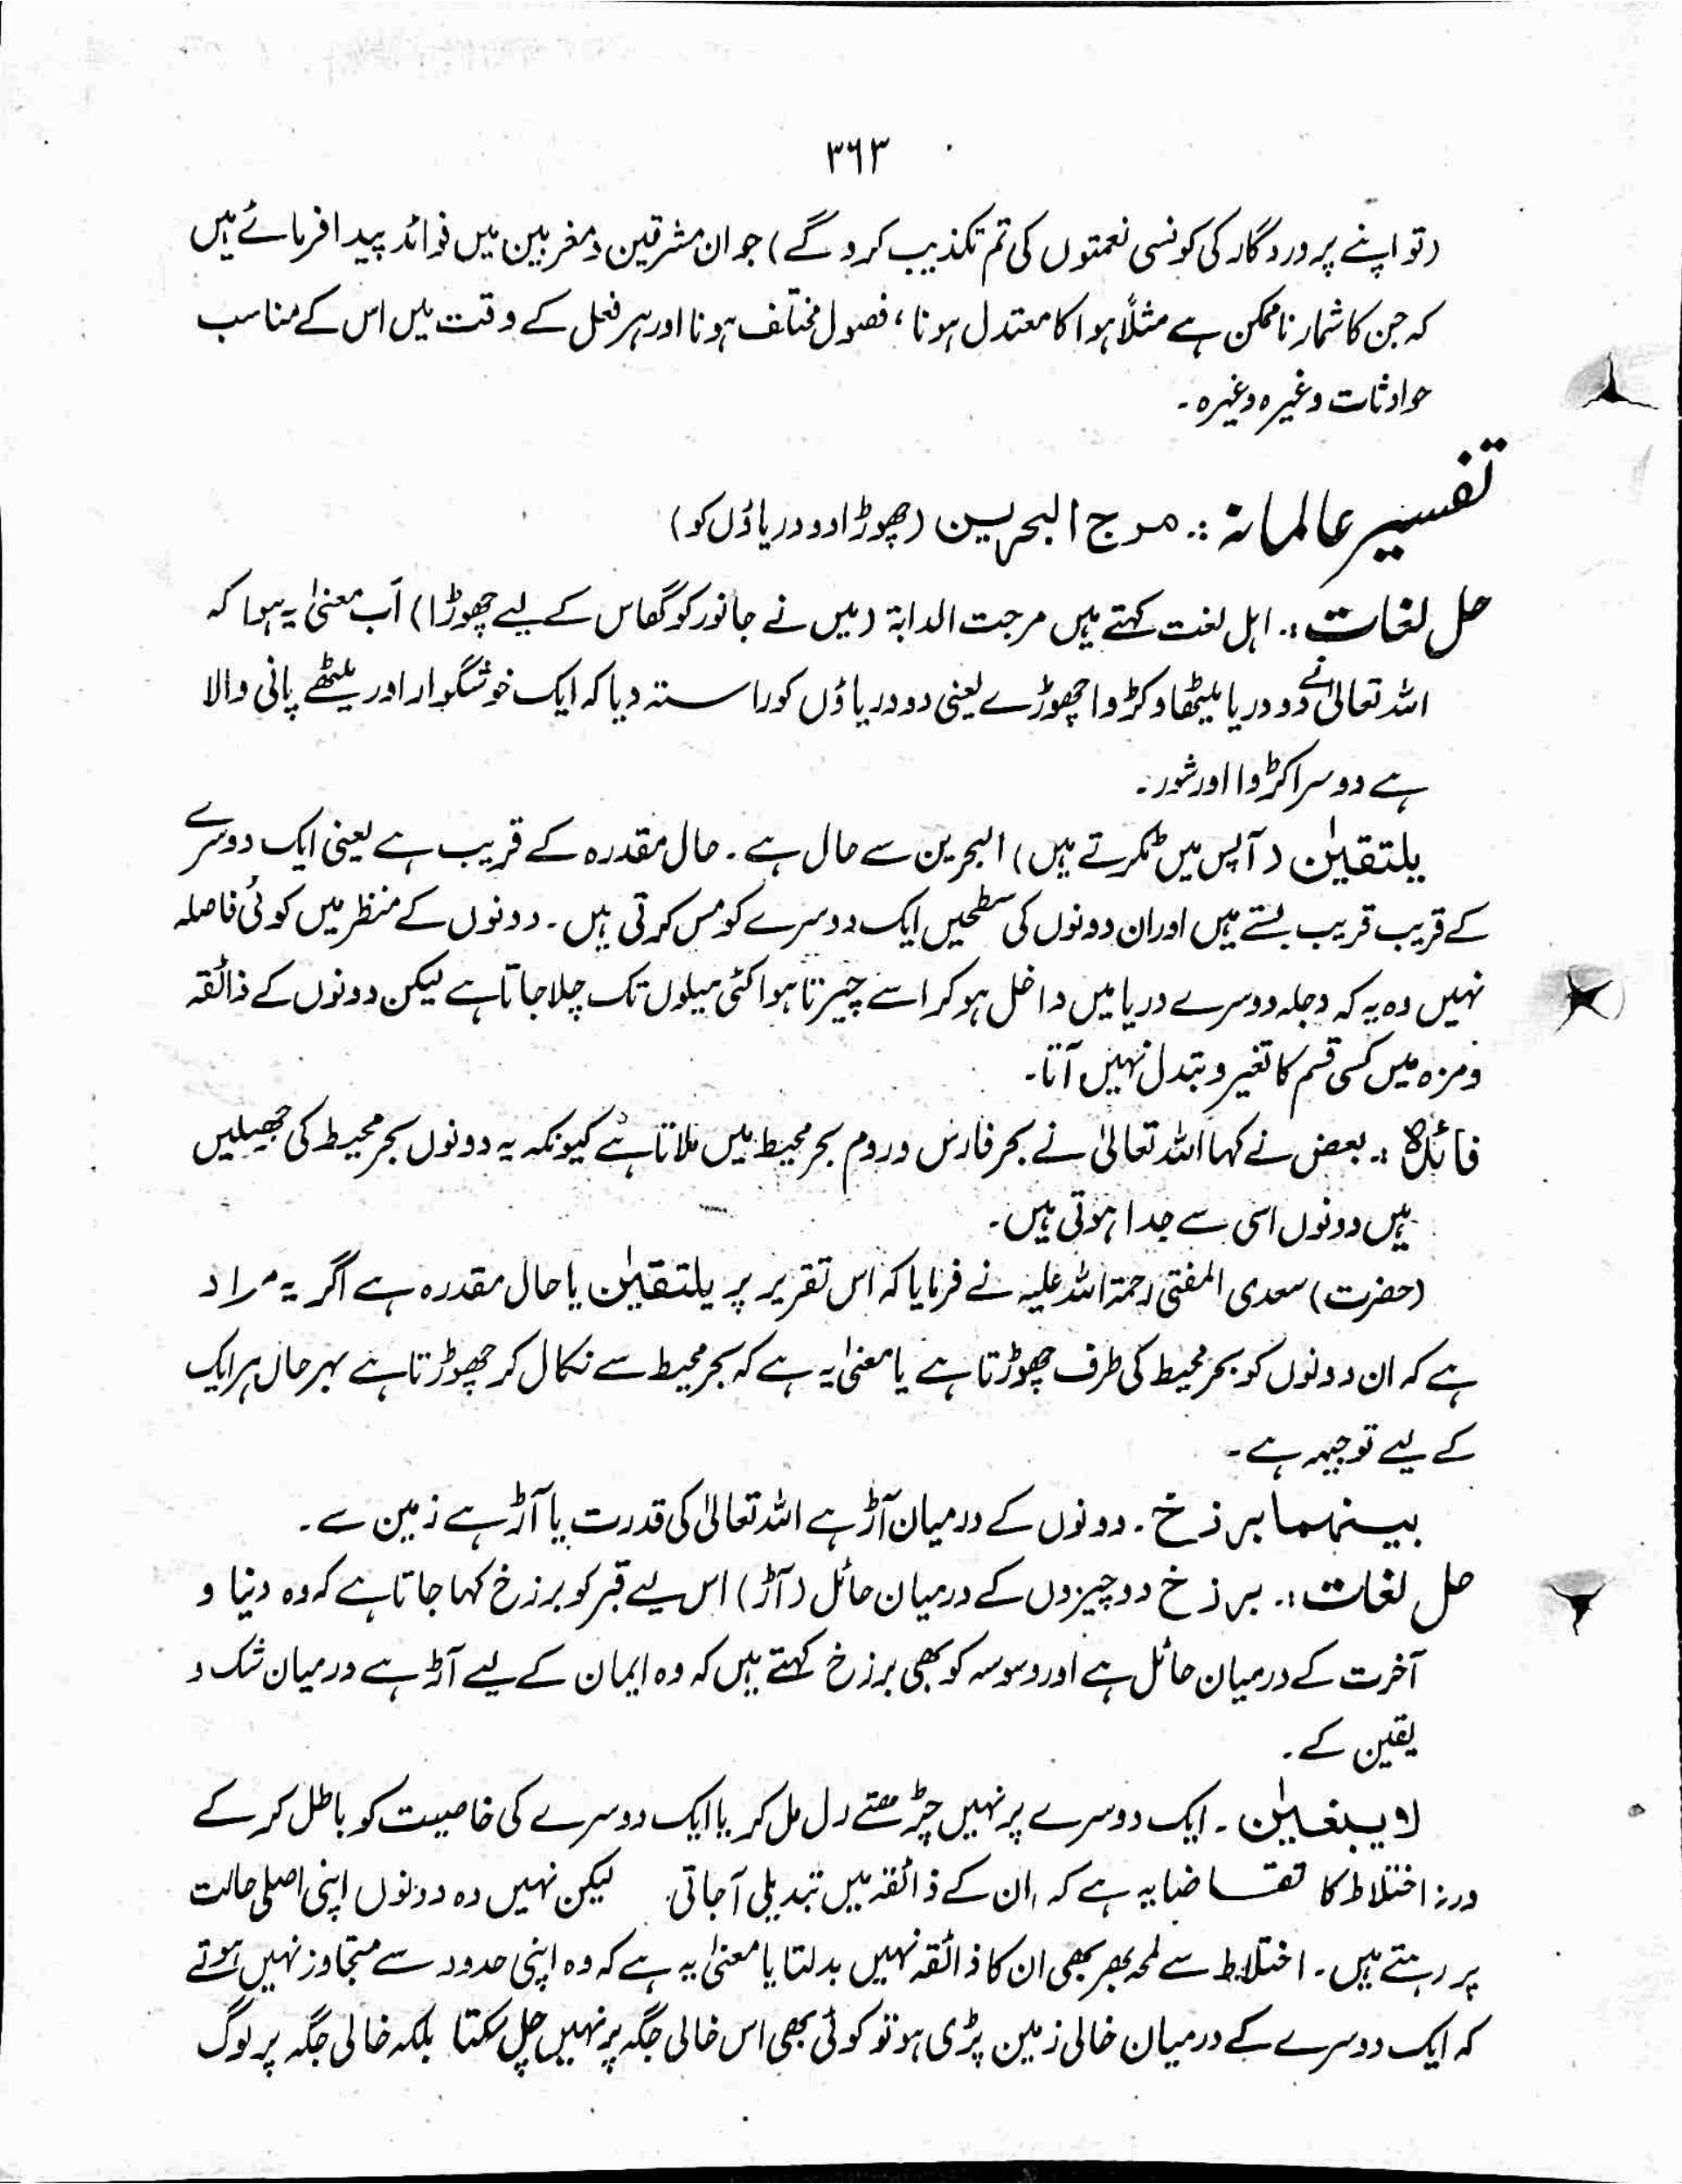 ۳۶۳
(تو اپنے پروردگار کی کونسی نعمتوں کی تم تکذیب کرو گے) جو ان مشرقین و مغربین میں فوائد پیدا فرمائے ہیں
کہ جن کا شمار ناممکن ہے مثلاً ہوا کا معتدل ہونا، فصول مختلف ہونا اور ہر فصل کے وقت میں اس کے مناسب
حوادثات وغیرہ وغیرہ۔
تفسیر عالمانہ :۔ مرج البحرین (چھوڑا دو دریاؤں کو)
حل لغات :۔ اہل لغت کہتے ہیں مرجت الدابۃ (میں نے جانور کو گھاس کے لیے چھوڑا) اَب معنیٰ یہ ہوا کہ
اللہ تعالیٰ نے دو دریا میٹھا و کڑوا چھوڑے یعنی دو دریاؤں کو راستہ دیا کہ ایک خوشگوار اور میٹھے پانی والا
ہے دوسرا کڑوا اور شور۔
یلتقیٰن (آپس میں ٹکرتے ہیں) البحرین سے حال ہے۔ حال مقدرہ کے قریب ہے یعنی ایک دوسرے
کے قریب قریب بستے ہیں اور ان دونوں کی سطحیں ایک دوسرے کو مس کرتی ہیں۔ دونوں کے منظر میں کوئی فاصلہ
نہیں وہ یہ کہ دجلہ دوسرے دریا میں داخل ہو کر اسے چیرتا ہوا کئی میلوں تک چلا جاتا ہے لیکن دونوں کے ذائقہ
و مزہ میں کسی قسم کا تغیر و تبدل نہیں آتا۔
فائدہ :۔ بعض نے کہا اللہ تعالیٰ نے بحر فارس و روم بحر محیط میں ملاتا ہے کیونکہ یہ دونوں بحر محیط کی جھیلیں
ہیں دونوں اسی سے جدا ہوتی ہیں۔
(حضرت) سعدی المفتی رحمۃ اللہ علیہ نے فرمایا کہ اس تقریر پر یلتقیٰن یا حال مقدرہ ہے اگر یہ مراد
ہے کہ ان دونوں کو بحر محیط کی طرف چھوڑتا ہے یا معنیٰ یہ ہے کہ بحر محیط سے نکال کر چھوڑتا ہے بہر حال ہر ایک
کے لیے توجیہہ ہے۔
بینہما برزخ۔ دونوں کے درمیان آڑ ہے اللہ تعالیٰ کی قدرت یا آڑ ہے زمین سے۔
حل لغات :۔ برزخ دو چیزوں کے درمیان حائل (آڑ) اس لیے قبر کو برزخ کہا جاتا ہے کہ وہ دنیا و
آخرت کے درمیان حائل ہے اور وسوسہ کو بھی برزخ کہتے ہیں کہ وہ ایمان کے لیے آڑ ہے درمیان شک و
یقین کے۔
لا یبغیٰن۔ ایک دوسرے پر نہیں چڑھتے رل مل کر یا ایک دوسرے کی خاصیت کو باطل کر کے
ورنہ اختلاط کا تقاضا یہ ہے کہ ان کے ذائقہ میں تبدیلی آجاتی لیکن نہیں وہ دونوں اپنی اصلی حالت
پر رہتے ہیں۔ اختلاط سے لمحہ بھر بھی ان کا ذائقہ نہیں بدلتا یا معنیٰ یہ ہے کہ وہ اپنی حدود سے متجاوز نہیں ہوتے
کہ ایک دوسرے کے درمیان خالی زمین پڑی ہو تو کوئی بھی اس خالی جگہ پر نہیں چل سکتا بلکہ خالی جگہ پر لوگ